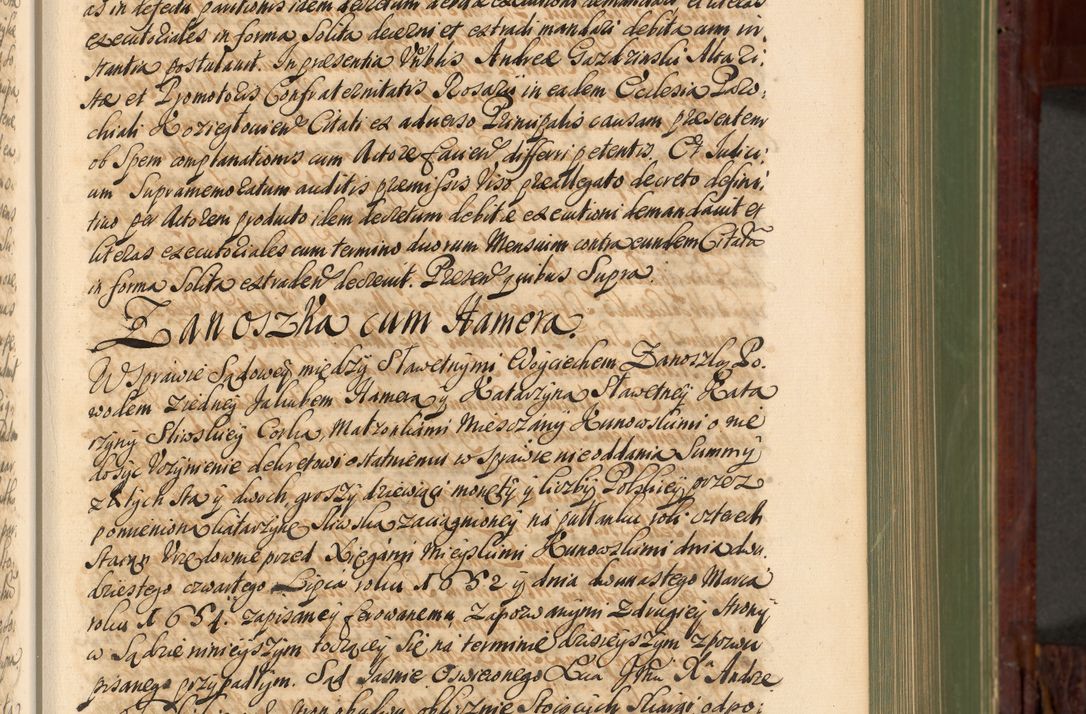 as in defectu paritionis idem decretum debitæ executioni demandari et literas
executoriales in forma solita decerni et extradi mandari debita cum in-
stantia postulavit. In præsentia Vrblis Andreæ Gozdzinski Altari-
stæ et Promotoris Confraternitatis Rosarij in eadem Ecclesia Paro-
chiali Kozieglovien Citati ex adverso Principalis causam præsentem
ob Spem complanationis cum Actore facien differri petentis. Et Judici-
um Supramemoratum auditis præmissis viso præallegato decreto defini-
tivo per Actorem producto idem decretum debitæ executioni demandavit et
literas executoriales cum termino duorum Mensium contra eundem Citatu
in forma Solita extraden decrevit. Præsen quibus Supra.
Zanoszka cum Hamera.
W Sprawie Sądowey między Sławetnymi Woyciechem Zanoszką Po-
wodem z iedney Jakubem Hamerą y Katarzyną Sławetney Kata
rzyny Sliwskiey Corką, Małżonkami Miesczany Kunowskimi o nie
dosyc Vczynienie dekretowi ostatniemu w Sprawie nieoddania Summy
złotych sta y dwoch groszy dziewiąci monety y liczby Polskiey przez
pomieniona Katarzynę Sliwską zaciągnioney na pułłanku roli czterech
Staian Vrzędownie przed Xięgami Mieyskimi Kunowskimi dnia dwu-
dziestego czwartego Lipca roku 1652 y dnia dwunastego Marca
roku 1654. zapisaney ferowanemu Zapozwanymi z drugiey Strony
w Sądzie ninieyszym toczącey się na terminie dzisieyszym z pozwu
pisanego przypadłym. Sąd Jasnie Oswieconego Xcia Jhmci X. Andrze